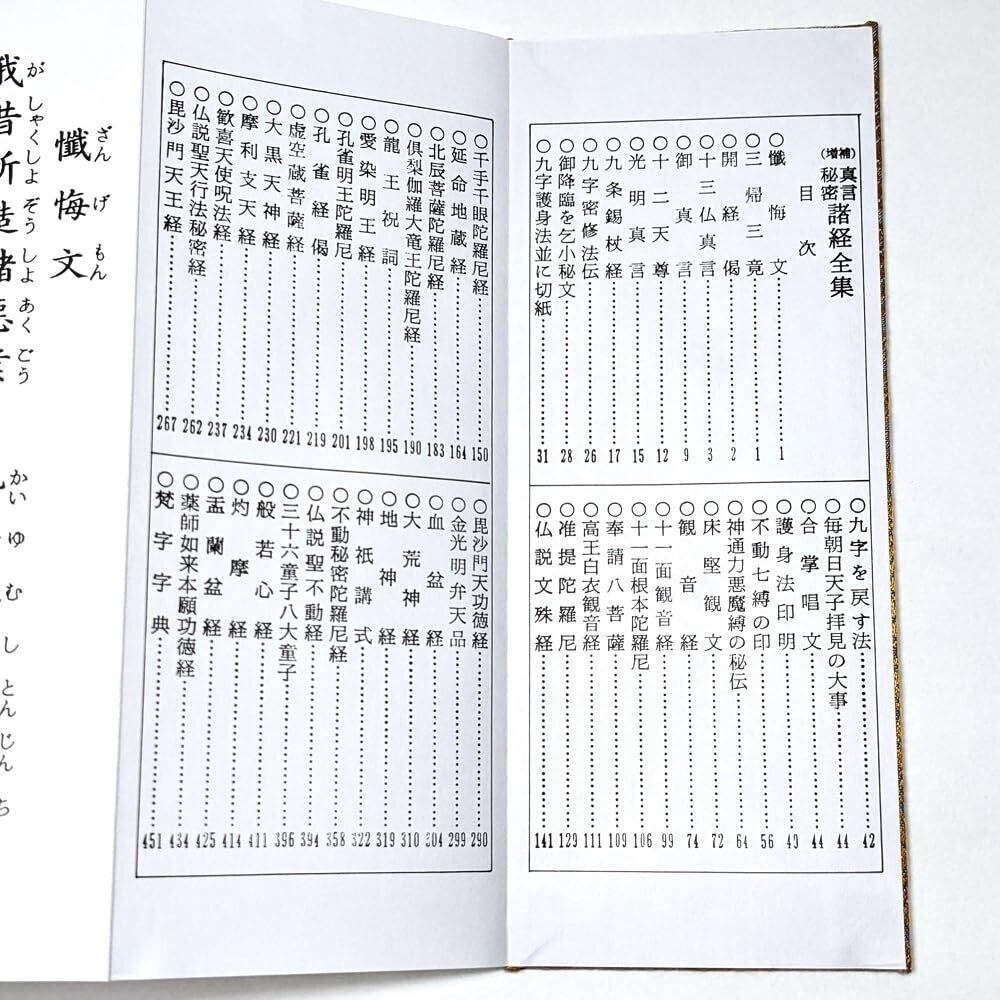 (増補)真言秘密諸経全集
目次
○懺悔文 1
○三帰三竟 1
○開経偈 2
○十三仏真言 3
○御真言 9
○十二天尊 12
○光明真言 15
○九条錫杖経 17
○九字密修法伝 26
○御降臨を乞小秘文 28
○九字護身法並に切紙 31
○九字を戻す法 42
○毎朝日天子拝見の大事 44
○合掌唱文 44
○護身法印明 49
○不動七縛の印 56
○神通力悪魔縛の秘伝 64
○床堅観文 72
○観音経 74
○十一面観音経 99
○十一面根本陀羅尼 106
○高王白衣観音経 111
○奉請八菩薩 109
○准提陀羅尼 129
○仏説文殊経 141
○千手千眼陀羅尼経 150
○延命地蔵経 164
○北辰菩薩陀羅尼経 183
○倶梨伽羅大竜王陀羅尼経 190
○龍王祝詞 195
○愛染明王経 198
○孔雀明王陀羅尼 201
○孔雀経偈 219
○虚空蔵菩薩経 221
○大黒天神経 230
○摩利支天経 234
○歓喜天使呪法経 237
○仏説聖天行法秘密経 262
○毘沙門天王経 267
○毘沙門天功徳経 290
○金光明弁天品 299
○血盆経 304
○大荒神経 310
○地神経 319
○神祇講式 322
○不動秘密陀羅尼経 358
○仏説聖不動経 394
○三十六童子八大童子 396
○般若心経 411
○灼摩経 414
○盂蘭盆経 425
○薬師如来本願功徳経 434
○梵字字典 451
懺悔文
ざんげもん
我昔所造諸悪業
がしゃくしよぞうしよあくごう